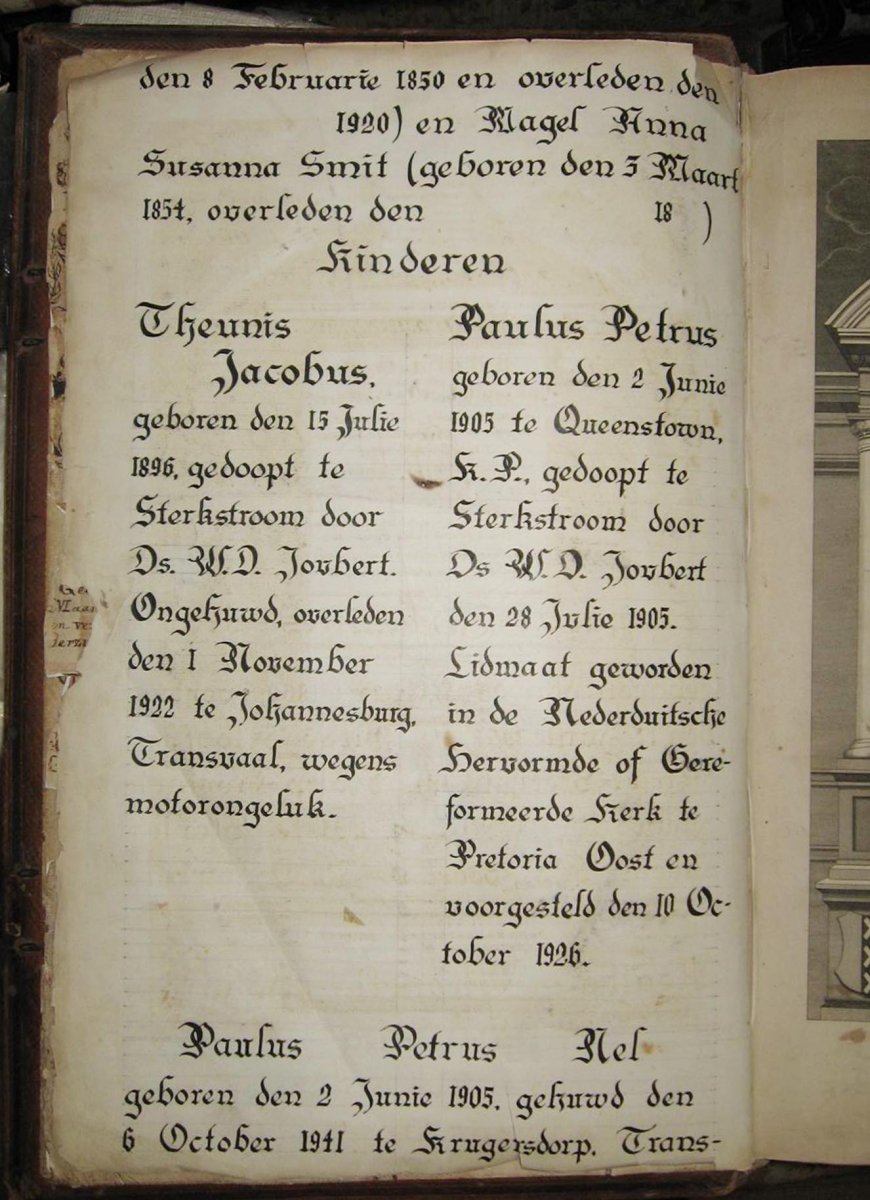 den 8 Februarie 1850 en overleden den
1920) en Magel Anna
Susanna Smit (geboren den 3 Maart
1854, overleden den 18 )
Kinderen
Theunis
Jacobus,
geboren den 15 Julie
1896, gedoopt te
Sterkstroom door
Ds. W.D. Joubert.
Ongehuwd, overleden
den 1 November
1922 te Johannesburg,
Transvaal, wegens
motorongeluk.
Paulus Petrus
geboren den 2 Junie
1905 te Queenstown,
K.P., gedoopt te
Sterkstroom door
Ds W.D. Joubert
den 28 Julie 1905.
Lidmaat geworden
in de Nederduitsche
Hervormde of Gere-
formeerde Kerk te
Pretoria Oost en
voorgesteld den 10 Oc-
tober 1926.
Paulus Petrus Nel
geboren den 2 Junie 1905, gehuwd den
6 October 1941 te Krugersdorp, Trans-